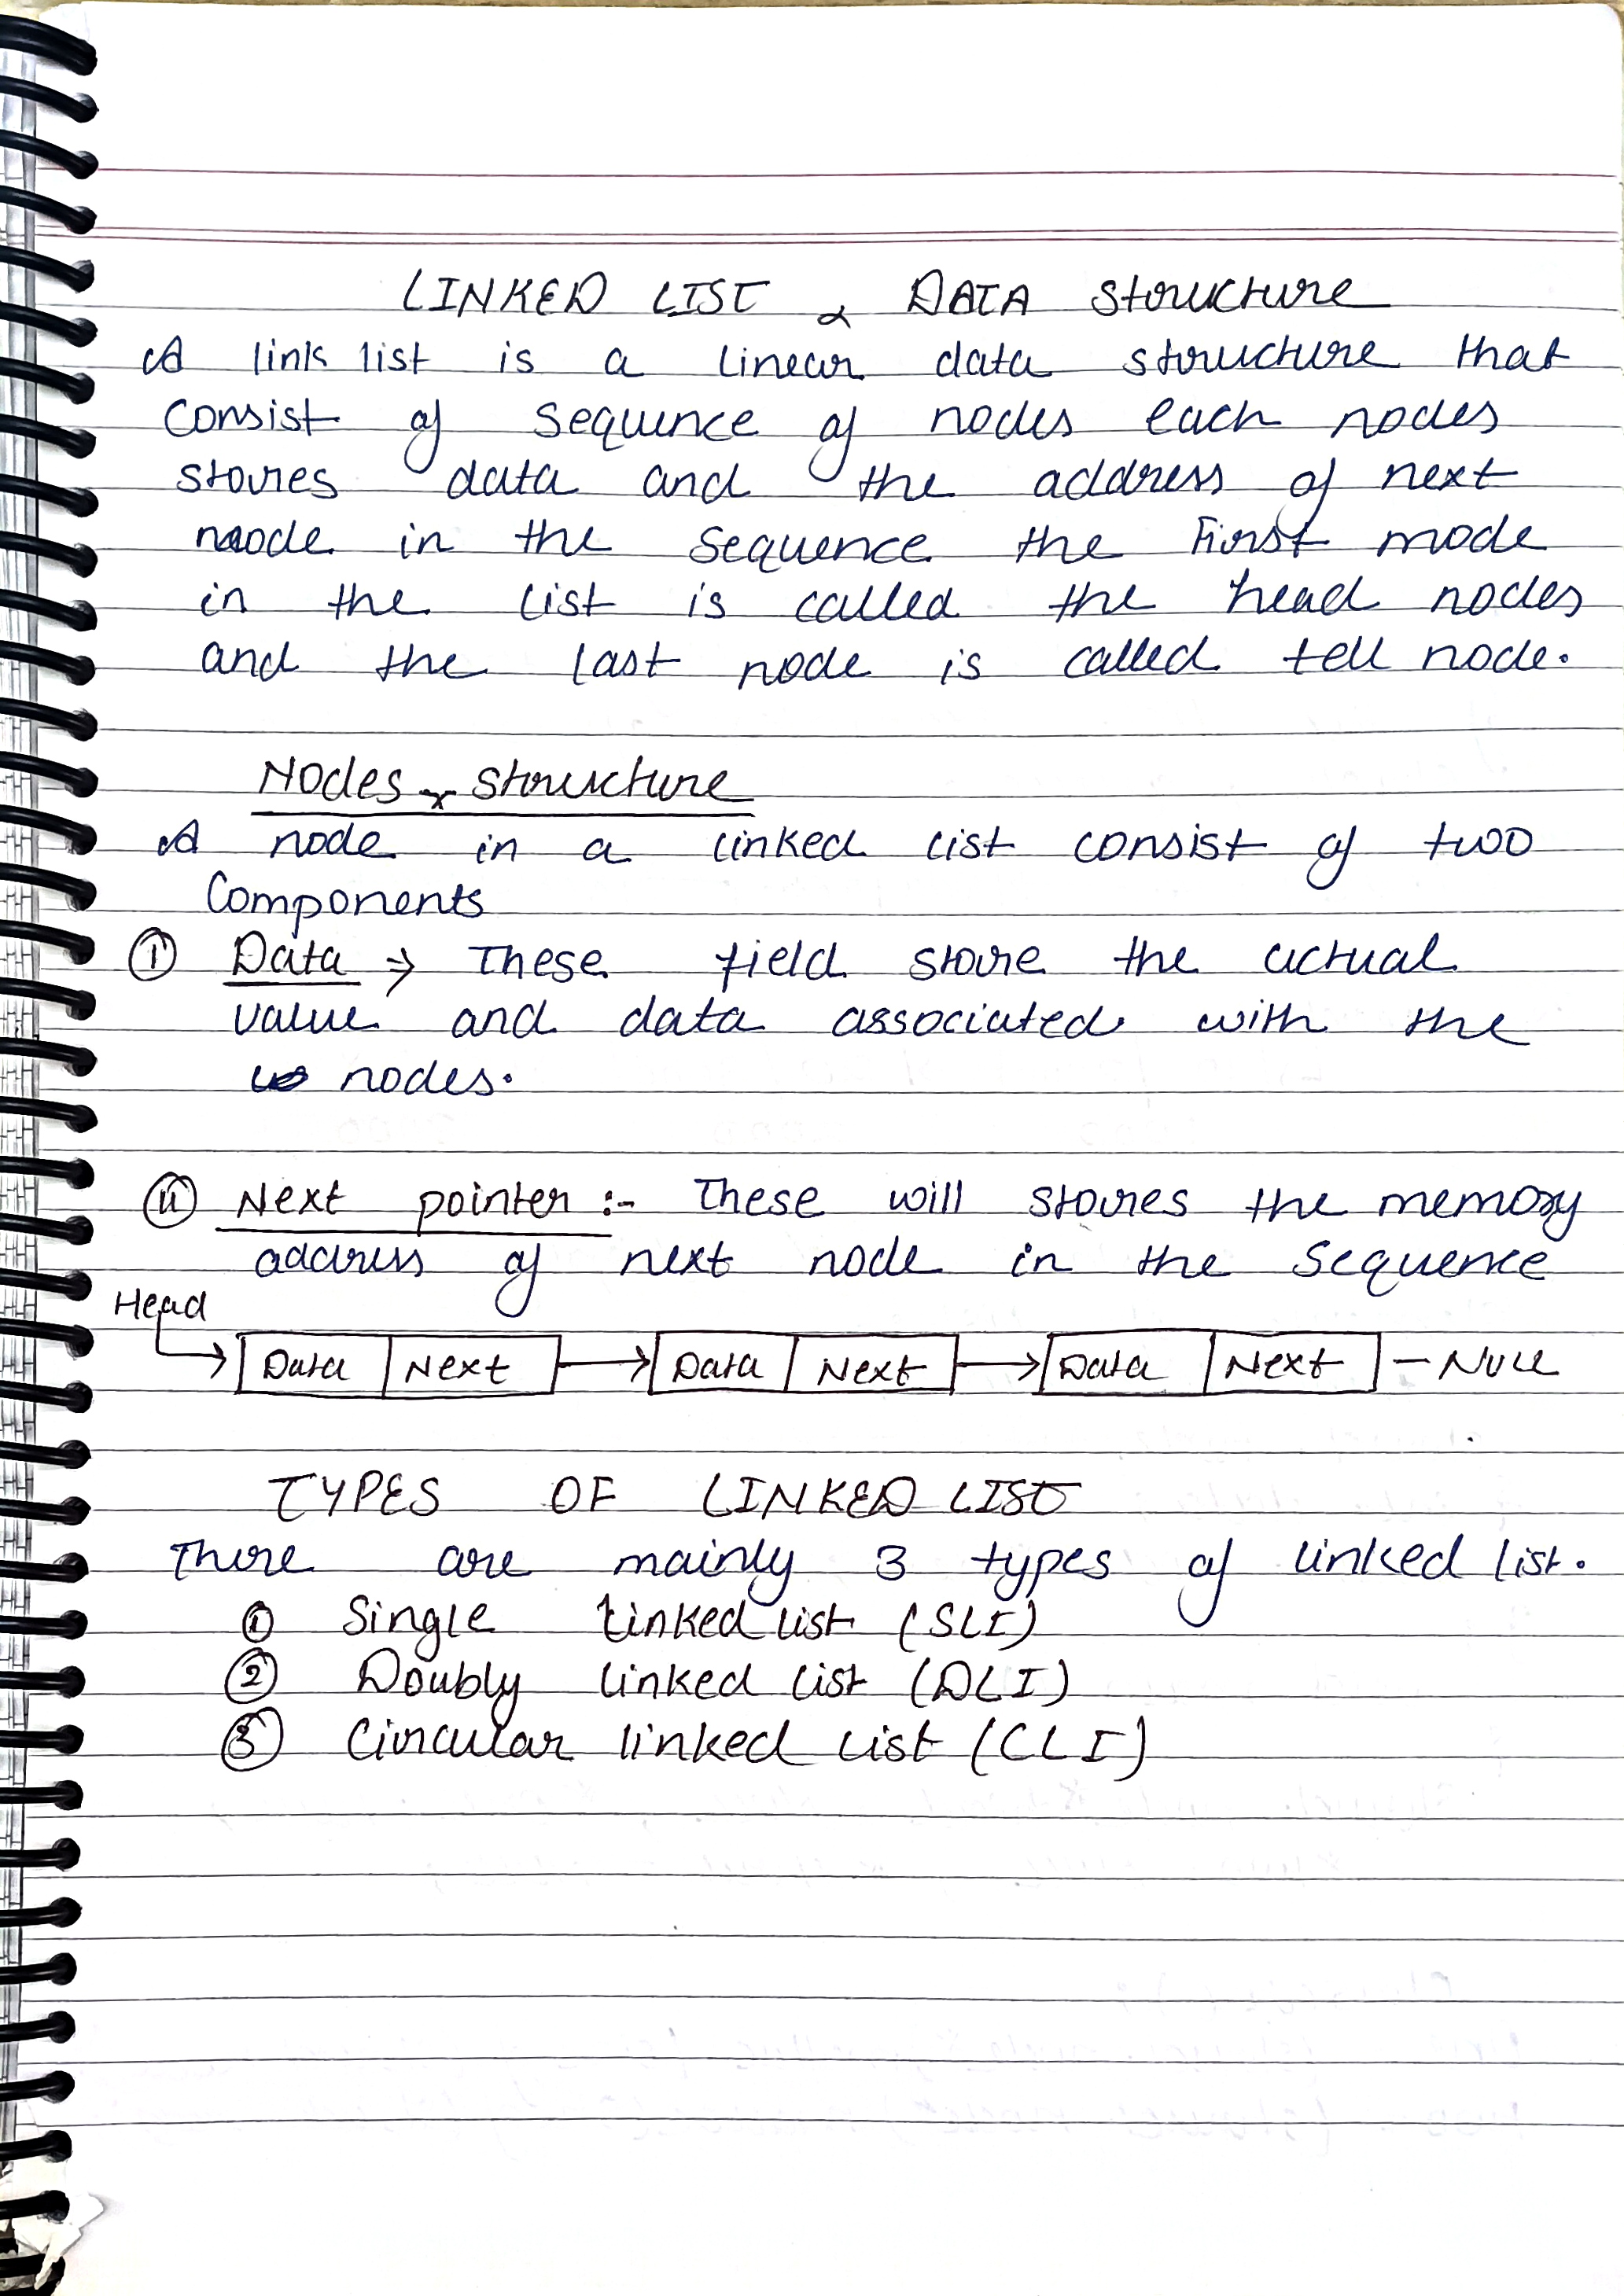 LINKED LIST & DATA structure
A link list is a linear data structure that
consist of sequence of nodes each nodes
stores data and the address of next
node in the sequence the First mode
in the list is called the head nodes
and the last node is called tell node.
Nodes structure
A node in a linked list consist of two
Components
① Data → These field store the actual
value and data associated with the
nodes.
⑪ Next pointer :- These will stores the memory
address of next node in the sequence
Head
Data Next Data Next Data Next - NULL
TYPES OF LINKED LIST
There are mainly 3 types of linked list.
① Single linked list (SLI)
② Doubly linked list (DLI)
③ Circular linked list (CLI)